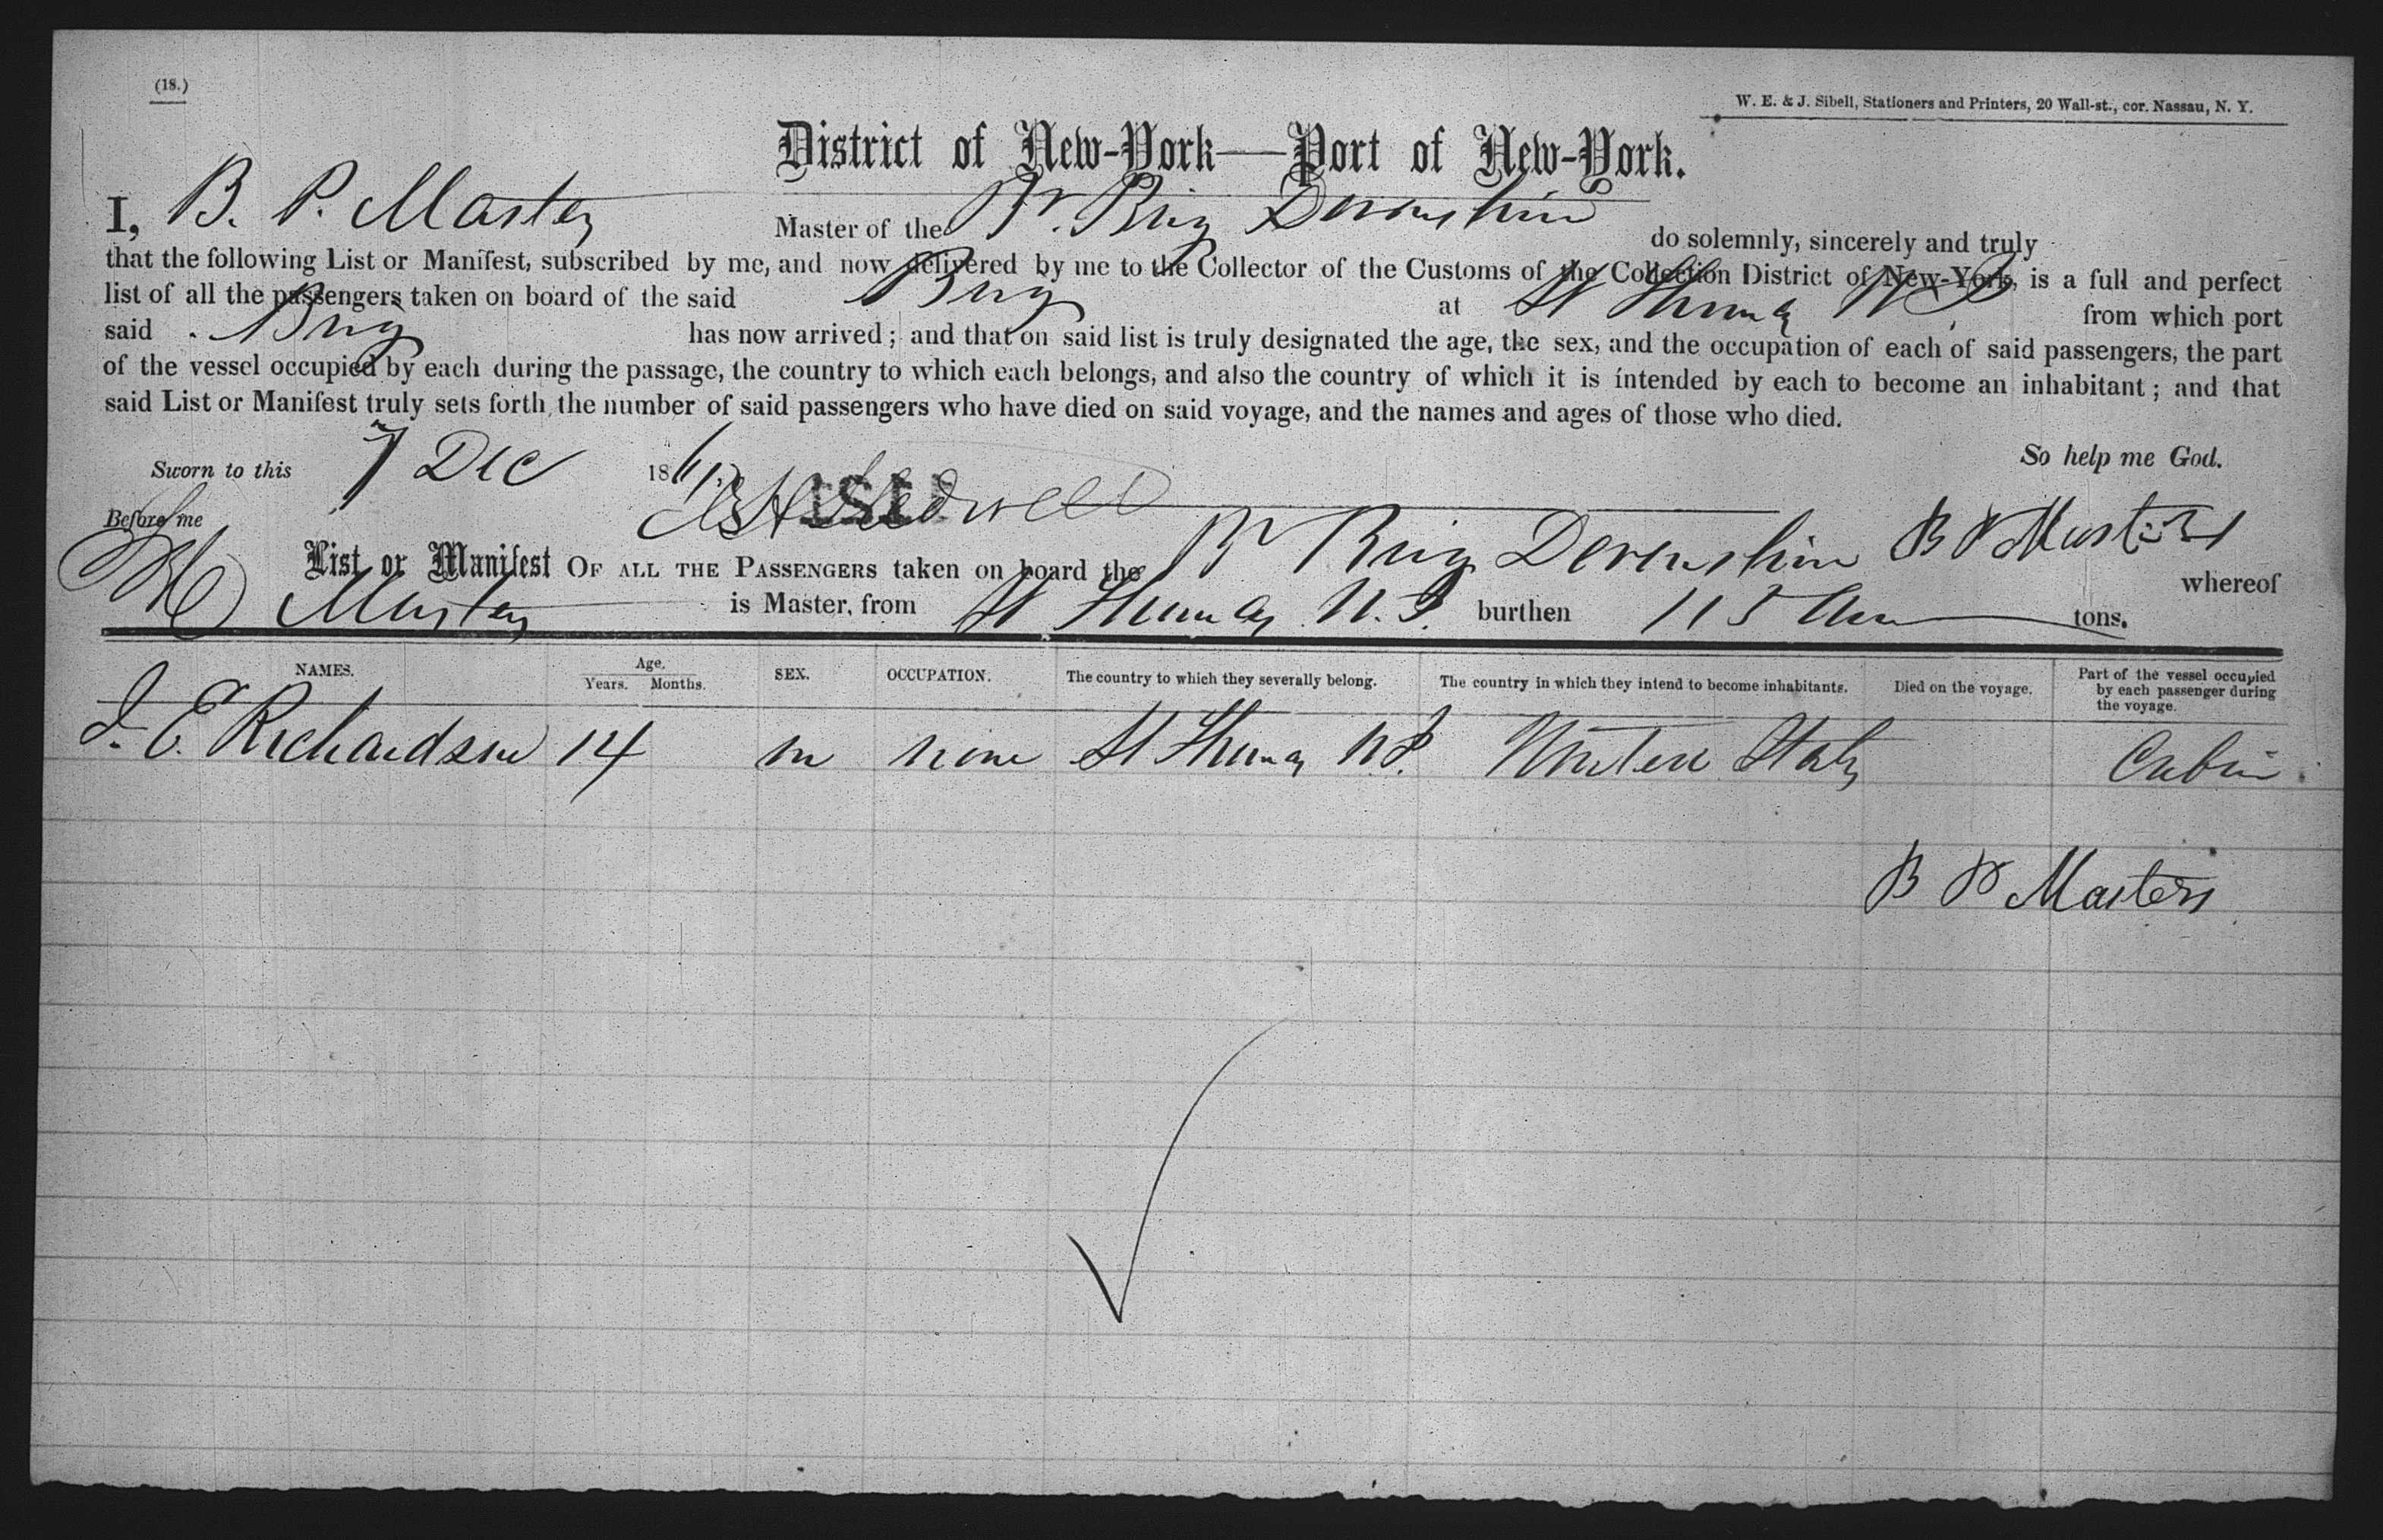 (18.)
W. E. & J. Sibell, Stationers and Printers, 20 Wall-st., cor. Nassau, N. Y.
District of New-York—Port of New-York.
I, B. P. Masters Master of the Br. Brig Devonshire do solemnly, sincerely and truly
that the following List or Manifest, subscribed by me, and now delivered by me to the Collector of the Customs of the Collection District of New-York, is a full and perfect
list of all the passengers taken on board of the said Brig at St Thomas W. I. from which port
said Brig has now arrived; and that on said list is truly designated the age, the sex, and the occupation of each of said passengers, the part
of the vessel occupied by each during the passage, the country to which each belongs, and also the country of which it is intended by each to become an inhabitant; and that
said List or Manifest truly sets forth the number of said passengers who have died on said voyage, and the names and ages of those who died.
So help me God.
Sworn to this 7 Dec 1861
1211
Before me
B P Masters
List or Manifest OF ALL THE PASSENGERS taken on board the Br Brig Devenshire whereof
Masters is Master, from St Thomas W. I. burthen 115 tons.
NAMES. Age. Years. Months. SEX. OCCUPATION. The country to which they severally belong. The country in which they intend to become inhabitants. Died on the voyage. Part of the vessel occupied by each passenger during the voyage.
J. E. Richardson 14 m none St Thomas W I. United States Cabin
B P Masters